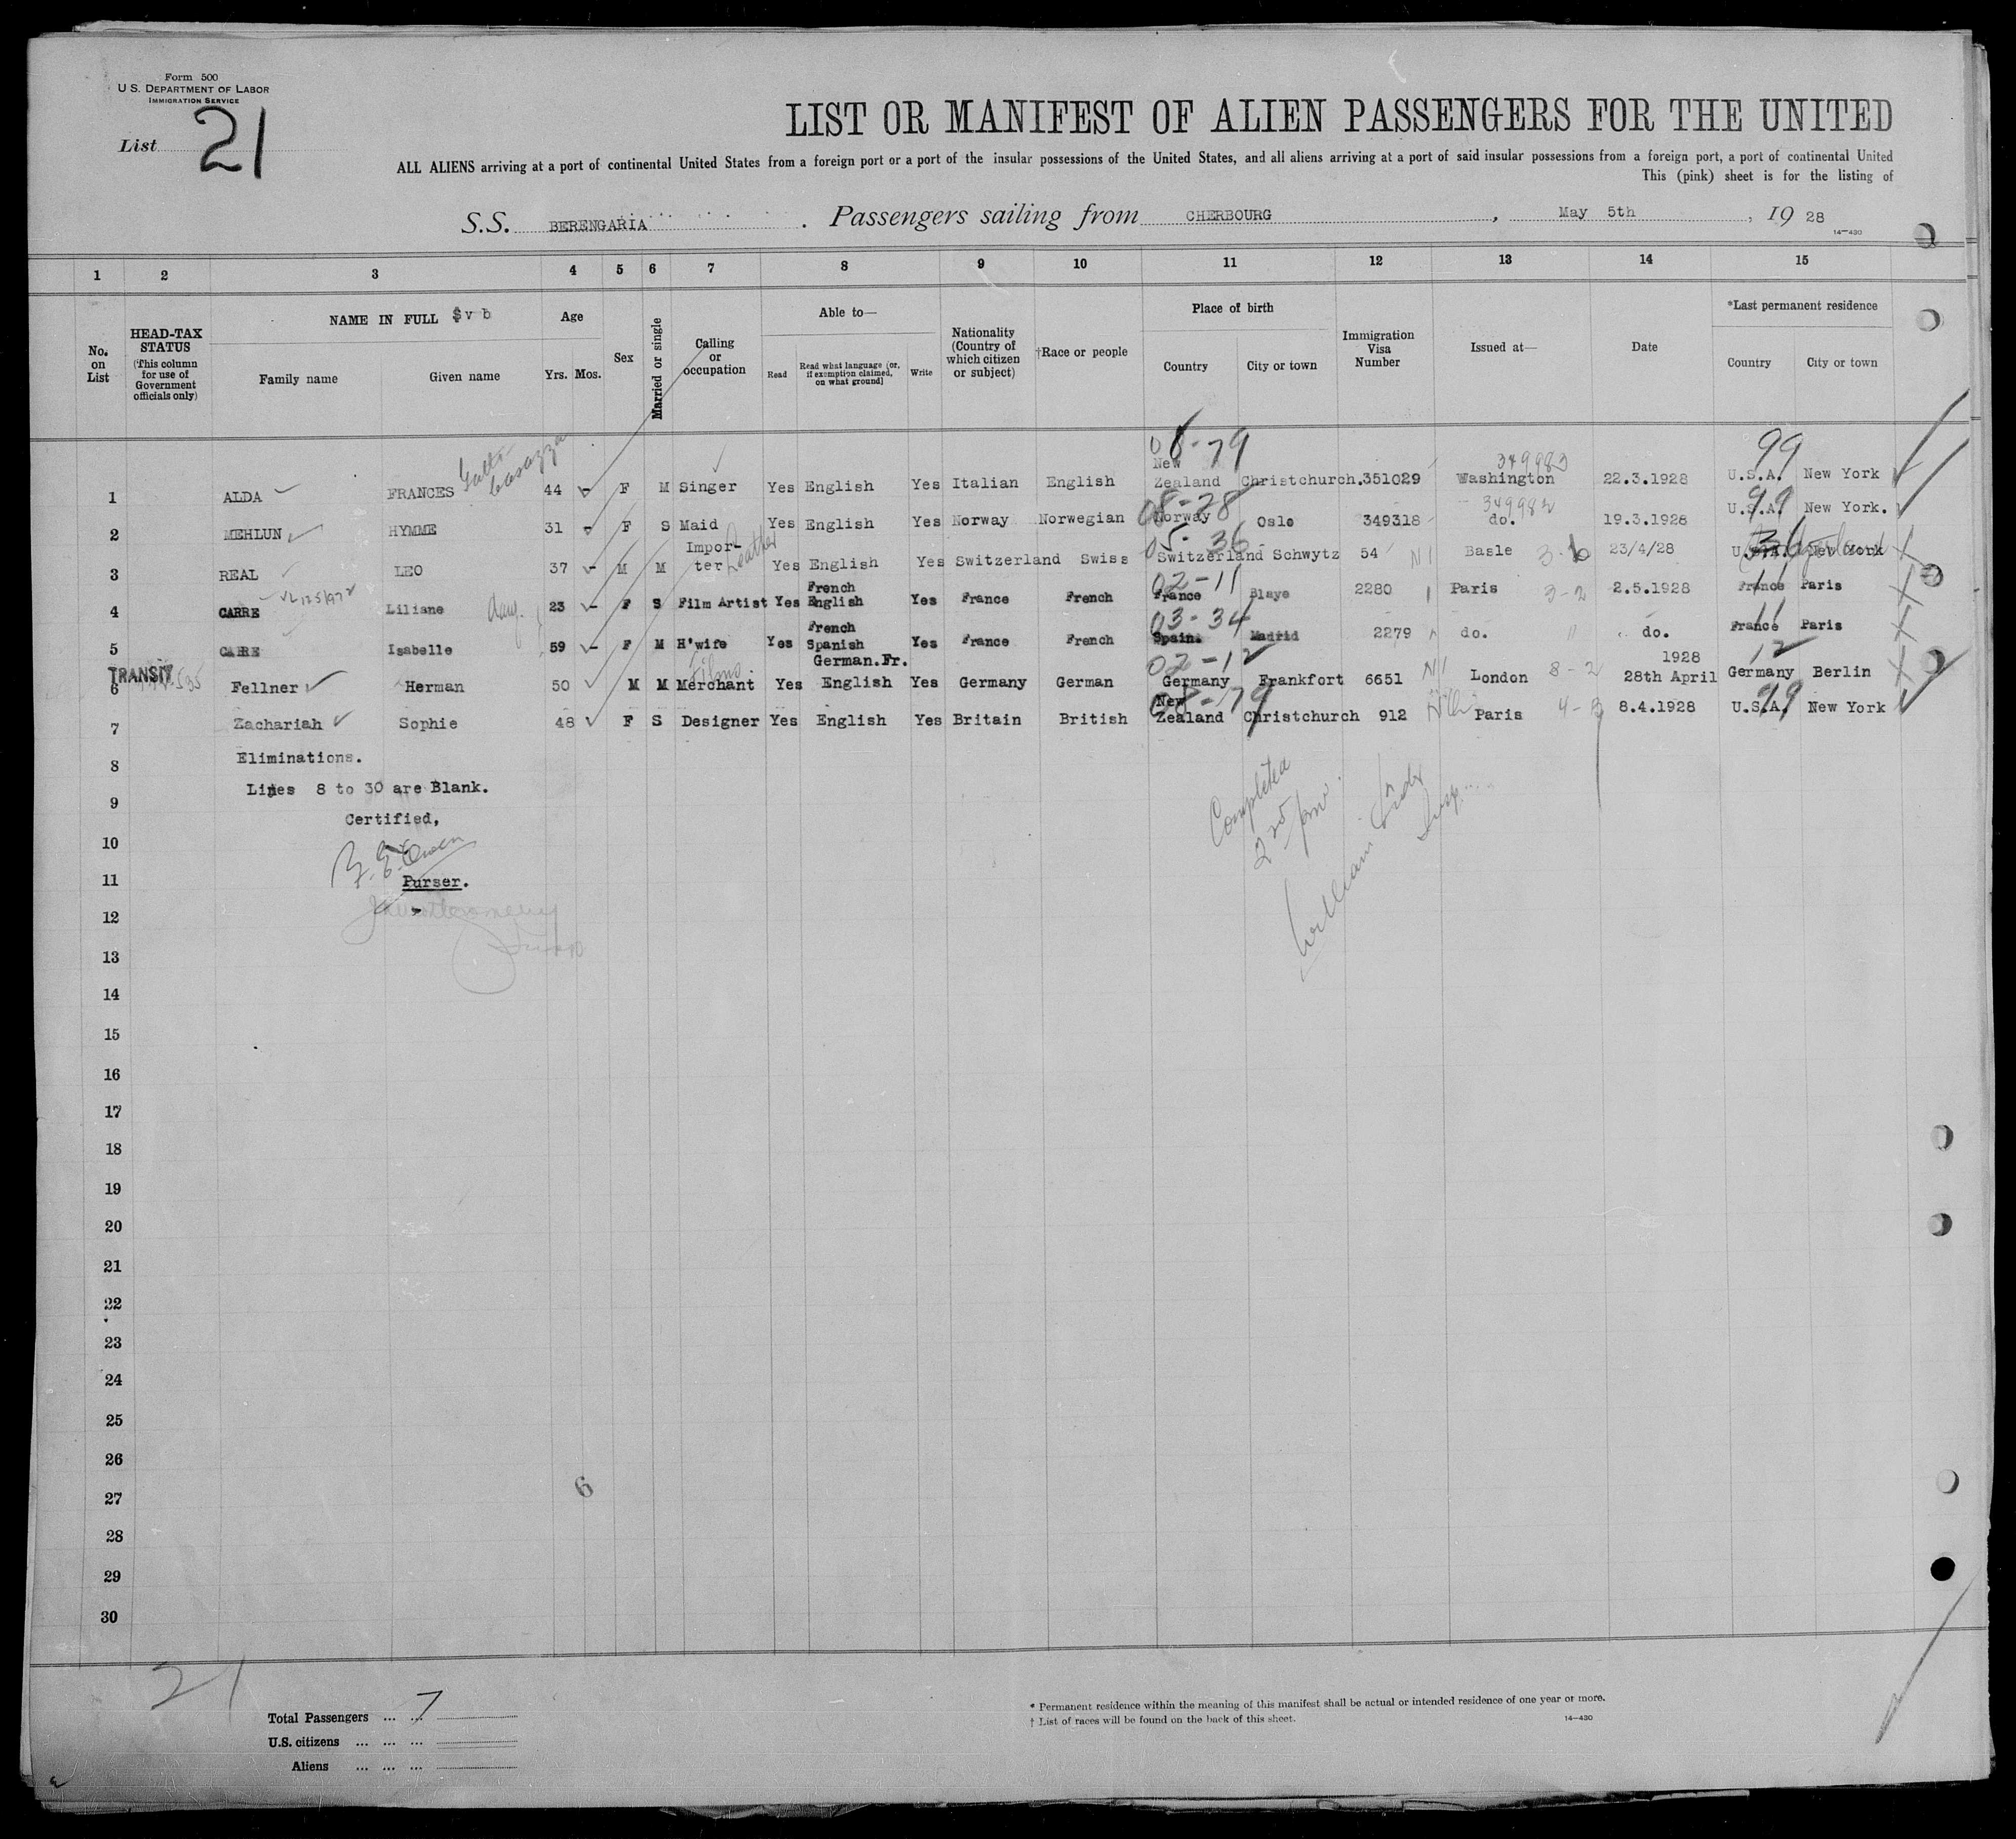 Form 500
U.S. DEPARTMENT OF LABOR
IMMIGRATION SERVICE
List 21
LIST OR MANIFEST OF ALIEN PASSENGERS FOR THE UNITED
ALL ALIENS arriving at a port of continental United States from a foreign port or a port of the insular possessions of the United States, and all aliens arriving at a port of said insular possessions from a foreign port, a port of continental United
This (pink) sheet is for the listing of
S.S. BERENGARIA. Passengers sailing from CHERBOURG, May 5th, 1928
14-430
1 2 3 4 5 6 7 8 9 10 11 12 13 14 15
No. on List
HEAD-TAX STATUS (This column for use of Government officials only)
NAME IN FULL $ v b
Family name Given name
Age Yrs. Mos.
Sex
Married or single
Calling or occupation
Able to—
Read Read what language (or, if exemption claimed, on what ground) Write
Nationality (Country of which citizen or subject)
†Race or people
Place of birth
Country City or town
Immigration Visa Number
Issued at—
Date
*Last permanent residence
Country City or town
08-79 99
Gatti Casazza 349983
1 ALDA FRANCES 44 F M Singer Yes English Yes Italian English New Zealand Christchurch. 351029 Washington 22.3.1928 U.S.A. New York
08-28 349982 99
2 MEHLUN HYMME 31 F S Maid Yes English Yes Norway Norwegian Norway Oslo 349318 do. 19.3.1928 U.S.A. New York.
05-36 36
3 REAL LEO 37 M M Importer Leather Yes English Yes Switzerland Swiss Switzerland Schwytz 54 N1 Basle 23/4/28 U.S.A. New York
02-11 11
4 CARRE Liliane daug. 23 F S Film Artist Yes French English Yes France French France Blaye 2280 Paris 3-2 2.5.1928 France Paris
03-34 11
5 CARRE Isabelle 59 F M H'wife Yes French Spanish Yes France French Spain. Madrid 2279 do. do. France Paris
TRANSIT
02-12 12
6 Fellner Herman 50 M M Merchant Films Yes German.Fr. English Yes Germany German Germany Frankfort 6651 N1 London 8-2 28th April 1928 Germany Berlin
08-79 99
7 Zachariah Sophie 48 F S Designer Yes English Yes Britain British New Zealand Christchurch 912 Paris 8.4.1928 U.S.A. New York
8 Eliminations.
9 Lines 8 to 30 are Blank.
Certified,
10
11 Purser.
Completed
12
13
14
15
16
17
18
19
20
21
22
23
24
25
26
27
6
28
29
30
21
Total Passengers ... ... 7
U.S. citizens ... ... ...
Aliens ... ... ...
* Permanent residence within the meaning of this manifest shall be actual or intended residence of one year or more.
† List of races will be found on the back of this sheet.
14-430